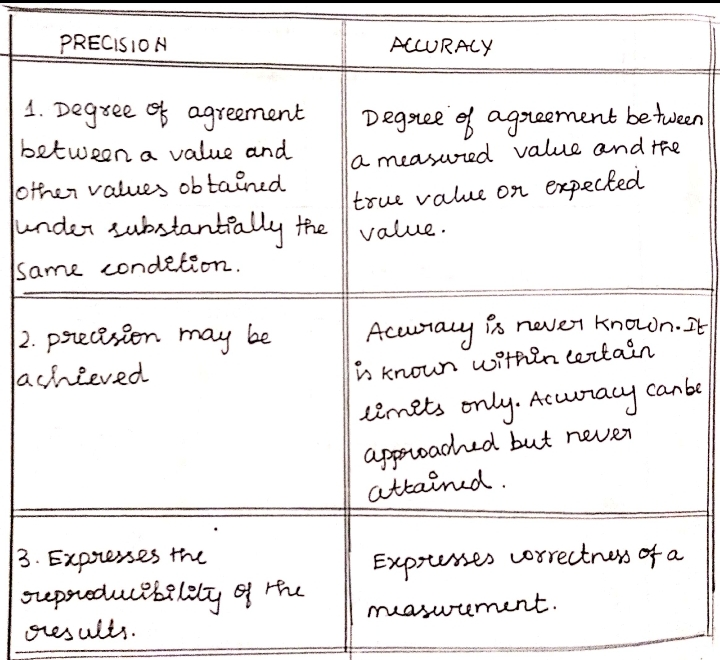 PRECISION
ACCURACY
1. Degree of agreement
between a value and
other values obtained
under substantially the
same condition.
Degree of agreement between
a measured value and the
true value or expected
value.
2. precision may be
achieved
Accuracy is never known. It
is known within certain
limits only. Accuracy can be
approached but never
attained.
3. Expresses the
reproducibility of the
results.
Expresses correctness of a
measurement.